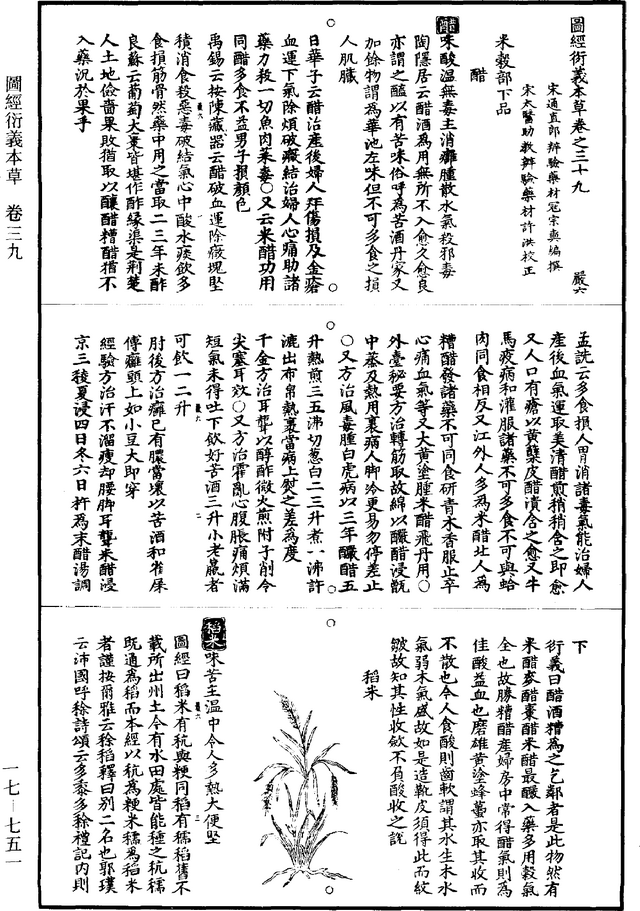 圖經衍義本草卷之三十九
嚴六
宋通直郎辨驗藥材寇宗奭編撰
宋太醫助教辨驗藥材許洪校正
米穀部下品
醋
醋
味酸溫無毒主消癰腫散水氣殺邪毒
陶隱居云醋酒為用無所不入愈久愈良
亦謂之醯以有苦味俗呼為苦酒丹家又
加餘物謂為華池左味但不可多食之損
人肌臟
日華子云醋治產後婦人并傷損及金瘡
血運下氣除煩破癥結治婦人心痛助諸
藥力殺一切魚肉菜毒○又云米醋功用
同醋多食不益男子損顏色
禹錫云按陳藏器云醋破血運除癥塊堅
積消食殺惡毒破結氣心中酸水痰飲多
食損筋骨然藥中用之當取二三年米酢
良蘇云葡萄大棗皆堪作酢緣渠是荊楚
人土地儉嗇果敗猶取以釀醋糟醋猶不
入藥況於果乎
孟詵云多食損人胃消諸毒氣能治婦人
產後血氣運取美清醋煎稍稍含之即愈
又人口有瘡以黃蘗皮醋漬含之愈又牛
馬疫病和灌服諸藥不可多食不可與蛤
肉同食相反又江外人多為米醋北人為
糟醋發諸藥不可同食研青木香服止卒
心痛血氣等又大黃塗腫米醋飛丹用○
外臺秘要方治轉筋取故綿以釀醋浸甑
中蒸及熱用裹病人腳冷更易勿停差止
○又方治風毒腫白虎病以三年釀醋五
升熱煎三五沸切葱白二三升煮一沸許
漉出布帛熱裹當病上熨之差為度
千金方治耳聾以醇酢微火煎附子削令
尖塞耳效○又方治霍亂心腹脹痛煩滿
短氣未得吐下飲好苦酒三升小老羸者
可飲一二升
肘後方治癰已有膿當壞以苦酒和雀屎
傅癰頭上如小豆大即穿
經驗方治汗不溜瘦却腰腳耳聾米醋浸
京三稜夏浸四日冬六日杵為末醋湯調
下
衍義曰醋酒糟為之乞鄰者是此物然有
米醋麥醋棗醋米醋最釅入藥多用穀氣
全也故勝糟醋產婦房中常得醋氣則為
佳酸益血也磨雄黃塗蜂蠆亦取其收而
不散也今人食酸則齒軟謂其水生木水
氣弱木氣盛故如是造靴皮須得此而紋
皺故知其性收斂不負酸收之說
稻米
稻米
味苦主溫中令人多熱大便堅
圖經曰稻米有秔與粳同稻有稬稻舊不
載所出州土今有水田處皆能種之秔稬
既通為稻而本經以秔為粳米稬為稻米
者謹按爾雅云稌稻釋曰別二名也郭璞
云沛國呼稌詩頌云多黍多稌禮記內則
圖經衍義本草　卷三九
一七—七五一